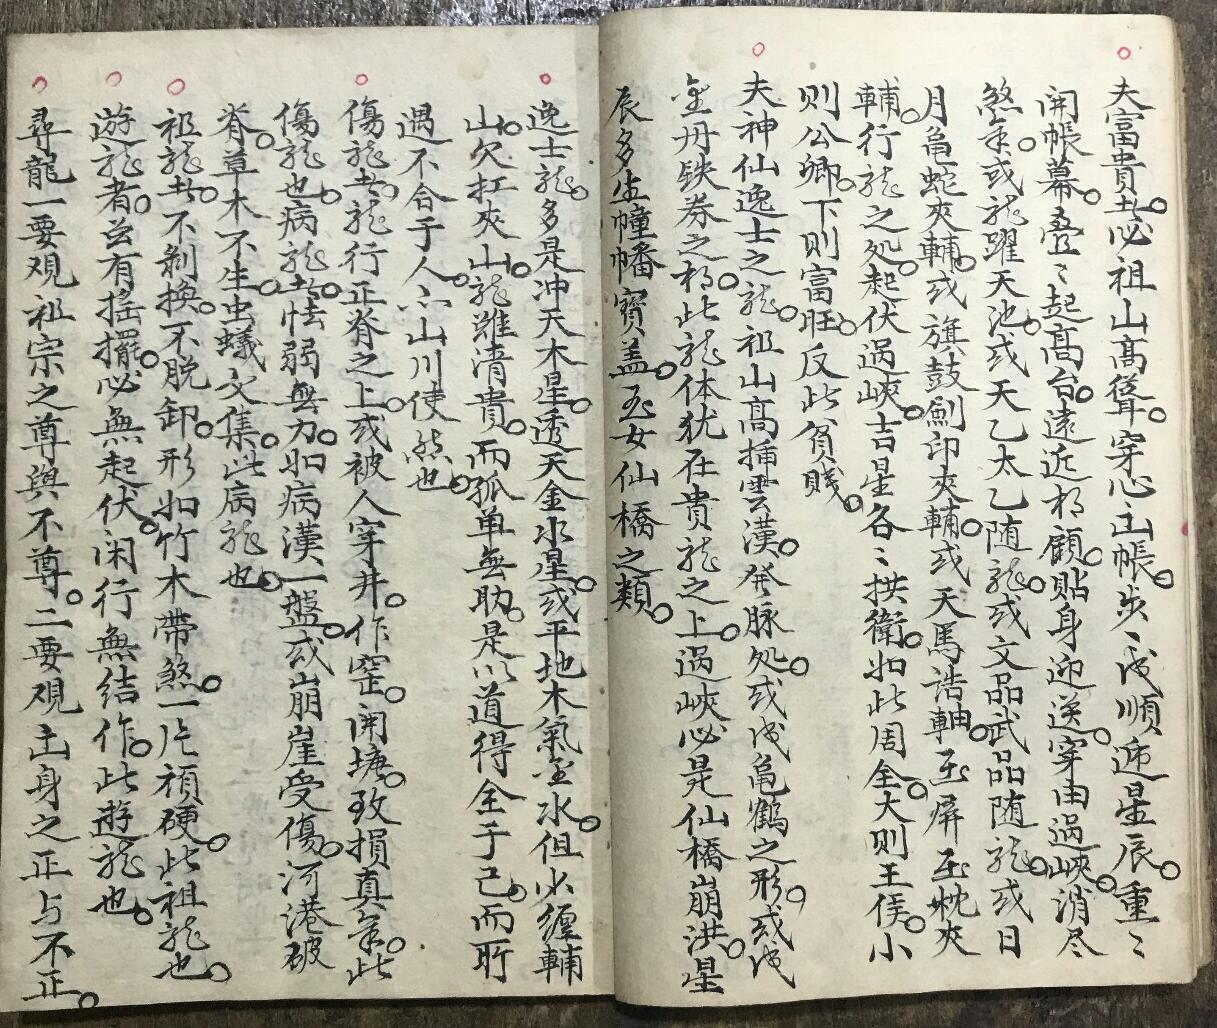 夫富貴龍必祖山高聳。穿心出帳。步〻或順逆星辰。重〻
開帳幕。疊〻起高台。遠近相顧。貼身迎送。穿田過峽。消尽
煞氣。或龍躍天池。或天乙太乙随龍。或文品武品随龍。或日
月亀蛇夾輔。或旗鼓劍印夾輔。或天馬誥軸。玉屏玉枕夾
輔。行龍之処。起伏過峽。吉星各〻拱衛。如此周全。大則王侯。小
則公卿。下則富旺。反此貧賤。
夫神仙逸士之龍。祖山高揷雲漢。発脉処。或成亀鶴之形。或成
金丹鉄券之相。此龍体犹在貴龍之上。過峽必是仙橋崩洪。星
辰多生幢幡寳盖。玉女仙橋之類。
逸士龍。多是冲天木星。透天金水星。或平地木氣金水。但少纏輔
山。欠扛夾山。龍雖清貴。而孤单無助。是以道得全于己。而所
遇不合于人。亦山川使然也。
傷龍者。龍行正脊之上。或被人穿井。作窑。開塘。致損真氣。此
傷龍也。病龍者。怯弱無力。如病漢一盤。或崩崖受傷。河港破
脊。草木不生。虫蟻交集。此病龍也。
祖龍者。不剝換。不脱卸。形如竹木帶煞。一片頑硬。此祖龍也。
遊龍者。并有搖擺。必無起伏。闲行無结作。此遊龍也。
尋龍一要观祖宗之尊與不尊。二要观出身之正与不正。